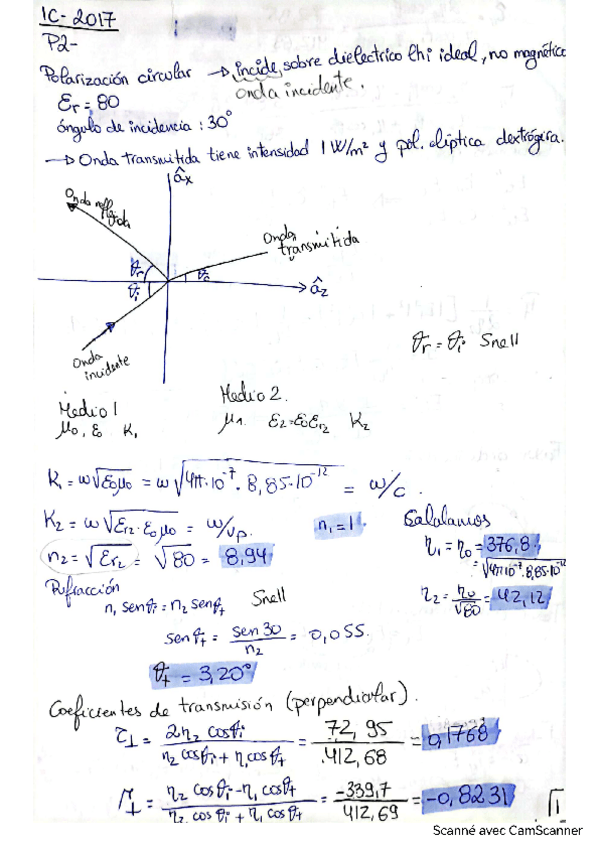 1C-2017
P2-
Polarización circular → incide sobre dielectrico lhi ideal, no magnético
onda incidente.
Er = 80
ángulo de incidencia : 30°
→ Onda transmitida tiene intensidad 1 W/m² y pol. eliptica dextrógira.
âx
Onda reflejada
Onda transmitida
θr
θt
θi
âz
Onda incidente
θr = θi Snell
Medio 1
Medio 2.
μ0, ε0 K1
μ1. ε2=ε0εr2 K2
K1 = ω√ε0μ0 = ω√4π·10⁻⁷·8,85·10⁻¹² = ω/c.
K2 = ω√εr2·ε0μ0 = ω/vp.
n1 = 1
Calulamos
n2 = √εr2 = √80 = 8,94
η1 = η0 = 376,8
= √4π10⁻⁷·8,85·10⁻¹²
Refracción
n1 senθi = n2 senθt Snell
η2 = η0/√80 = 42,12
senθt = sen30/n2 = 0,055.
θt = 3,20°
Coeficientes de transmisión (perpendicular).
τ⊥ = 2η2 cosθi / η2 cosθi + η1 cosθt = 72,95 / 412,68 = 0,1768
Γ⊥ = η2 cosθi - η1 cosθt / η2 cosθi + η1 cosθt = -339,7 / 412,69 = -0,8231
Scanné avec CamScanner